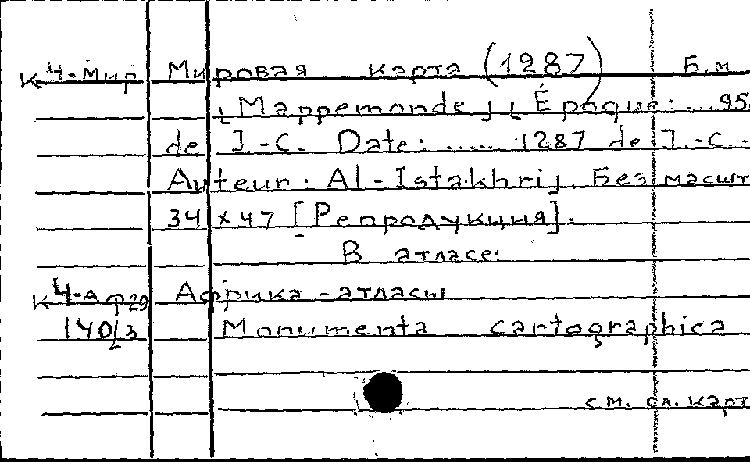 К Ч-Мир Мировая карта (1287) Б.м
[Mappemonde] [Époque: ... 95
de J.-C. Date: ..... 1287 de J.-C.-
Auteur: Al-Istakhri]. Без масшт
34 x 47 [Репродукция].
В атласе:
К Ч-Аф Африка - атласы
140/3 Monumenta cartographica
см. сл. карт